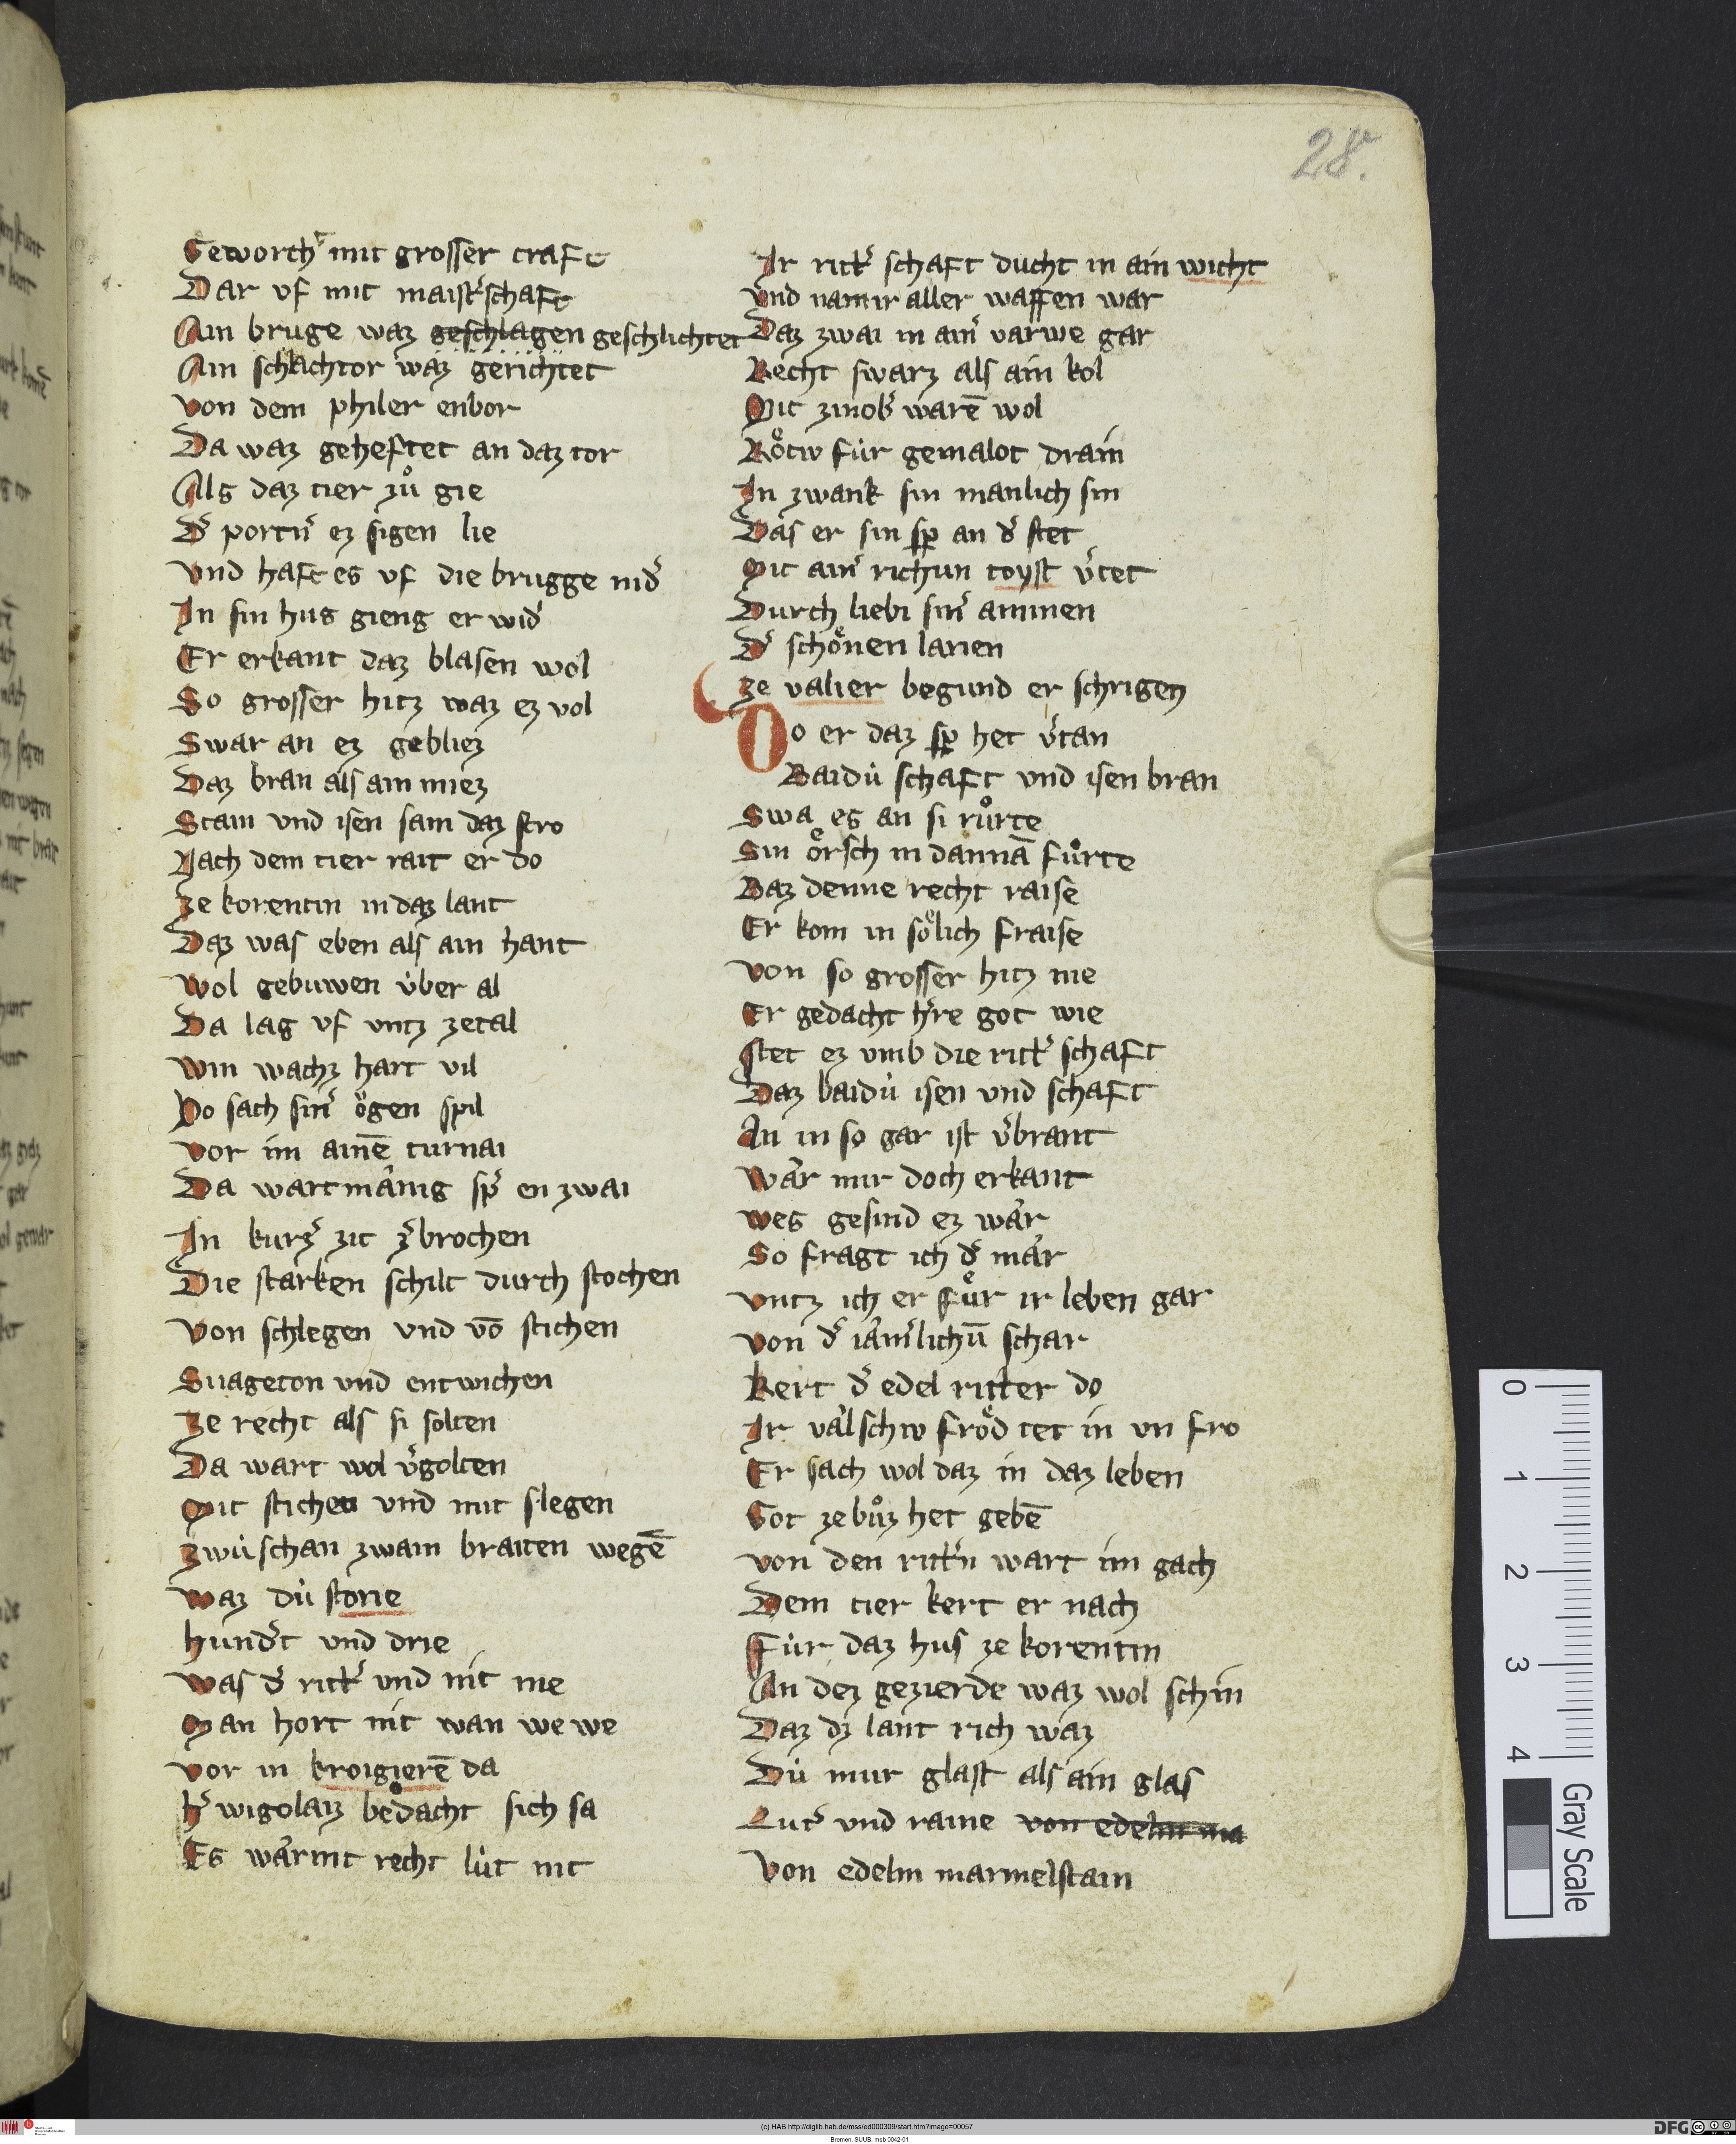 28.
Geworchᵗ mit grosser craft
Dar vf mit maistˀschaft
Ain bruge waz geschlagen geschlichtet
Ain schlachtor waz gerichtet
von dem philer enbor
Da waz geheftet an daz tor
Als daz tier zuͦ gie
Dˀ portnˀ ez sigen lie
vnd haft es vf die brugge nidˀ
In sin hus gieng er widˀ
Er erkant daz blasen wol
So grosser hitz waz ez vol
Swar an ez gebliez
Daz bran als ain miez
Stain vnd isen sam daz stro
Nach dem tier rait er do
ze korentin in daz lant
Daz was eben als ain hant
wol gebuwen v̇ber al
Da lag vf vntz zetal
win wachz hart vil
Do sach sinˀ oͤgen spil
vor im ainē turnai
Da wart mänig spˀ en zwai
In kurzˀ zit zˀbrochen
Die starken schilt durch stochen
von schlegen vnd vō stichen
Suageton vnd entwichen
ze recht als si solten
Da wart wol vˀgolten
Mit stichen vnd mit slegen
zwu̇schan zwain braiten wegē
waz du̇ storie
hundˀt vnd drie
was dˀ rittˀ vnd nit me
Man hort nit wan we we
vor in kroigierē da
hˀ wigolaiz bedacht sich sa
Es wärint recht lu̇t nit
Ir rittˀ schaft ducht in ain wicht
vnd nam ir aller waffen war
Daz zwai in ainˀ varwe gar
Recht swarz als ain kol
Mit zinobˀ warē wol
Roͤtw fu̇r gemalot drain
In zwank sin manlich sin
Das er sin sp̱ an dˀ stet
Mit ainˀ richun toyst vˀtet
Durch liebi sinˀ aminen
Dˀ schoͤnen larien
ze valier begund er schrigen
Do er daz sp̱ het vˀtan
Baidu̇ schaft vnd isen bran
Swa es an si ruͦrte
Sin oͤrsch in dannā fuͦrte
Baz denne recht raise
Er kom in soͤlich fraise
von so grosser hitz nie
Er gedacht hˀre got wie
stet ez vmb die rittˀ schaft
Daz baidu̇ isen vnd schaft
An in so gar ist vˀbrant
wär mir doch erkant
wes gesind ez wär
So fragt ich dˀ mär
vntz ich er fuͤr ir leben gar
von dˀ iämˀlichū schar
kert dˀ edel ritter do
Ir välschw froͤd tet in vn fro
Er sach wol daz in daz leben
Got ze buͦz het gebē
von den rittˀn wart im gach
Dem tier kert er nach
Fu̇r daz hus ze korentin
An dez gezierde waz wol schin
Daz dz lant rich waz
Du̇ mur glast als ain glas
Lutˀ vnd raine von edelm ma
Von edelm marmelstain
0
1
2
3
4
Gray Scale
(c) HAB http://diglib.hab.de/mss/ed000309/start.htm?image=00057
Bremen, SUUB, msb 0042-01
DFG